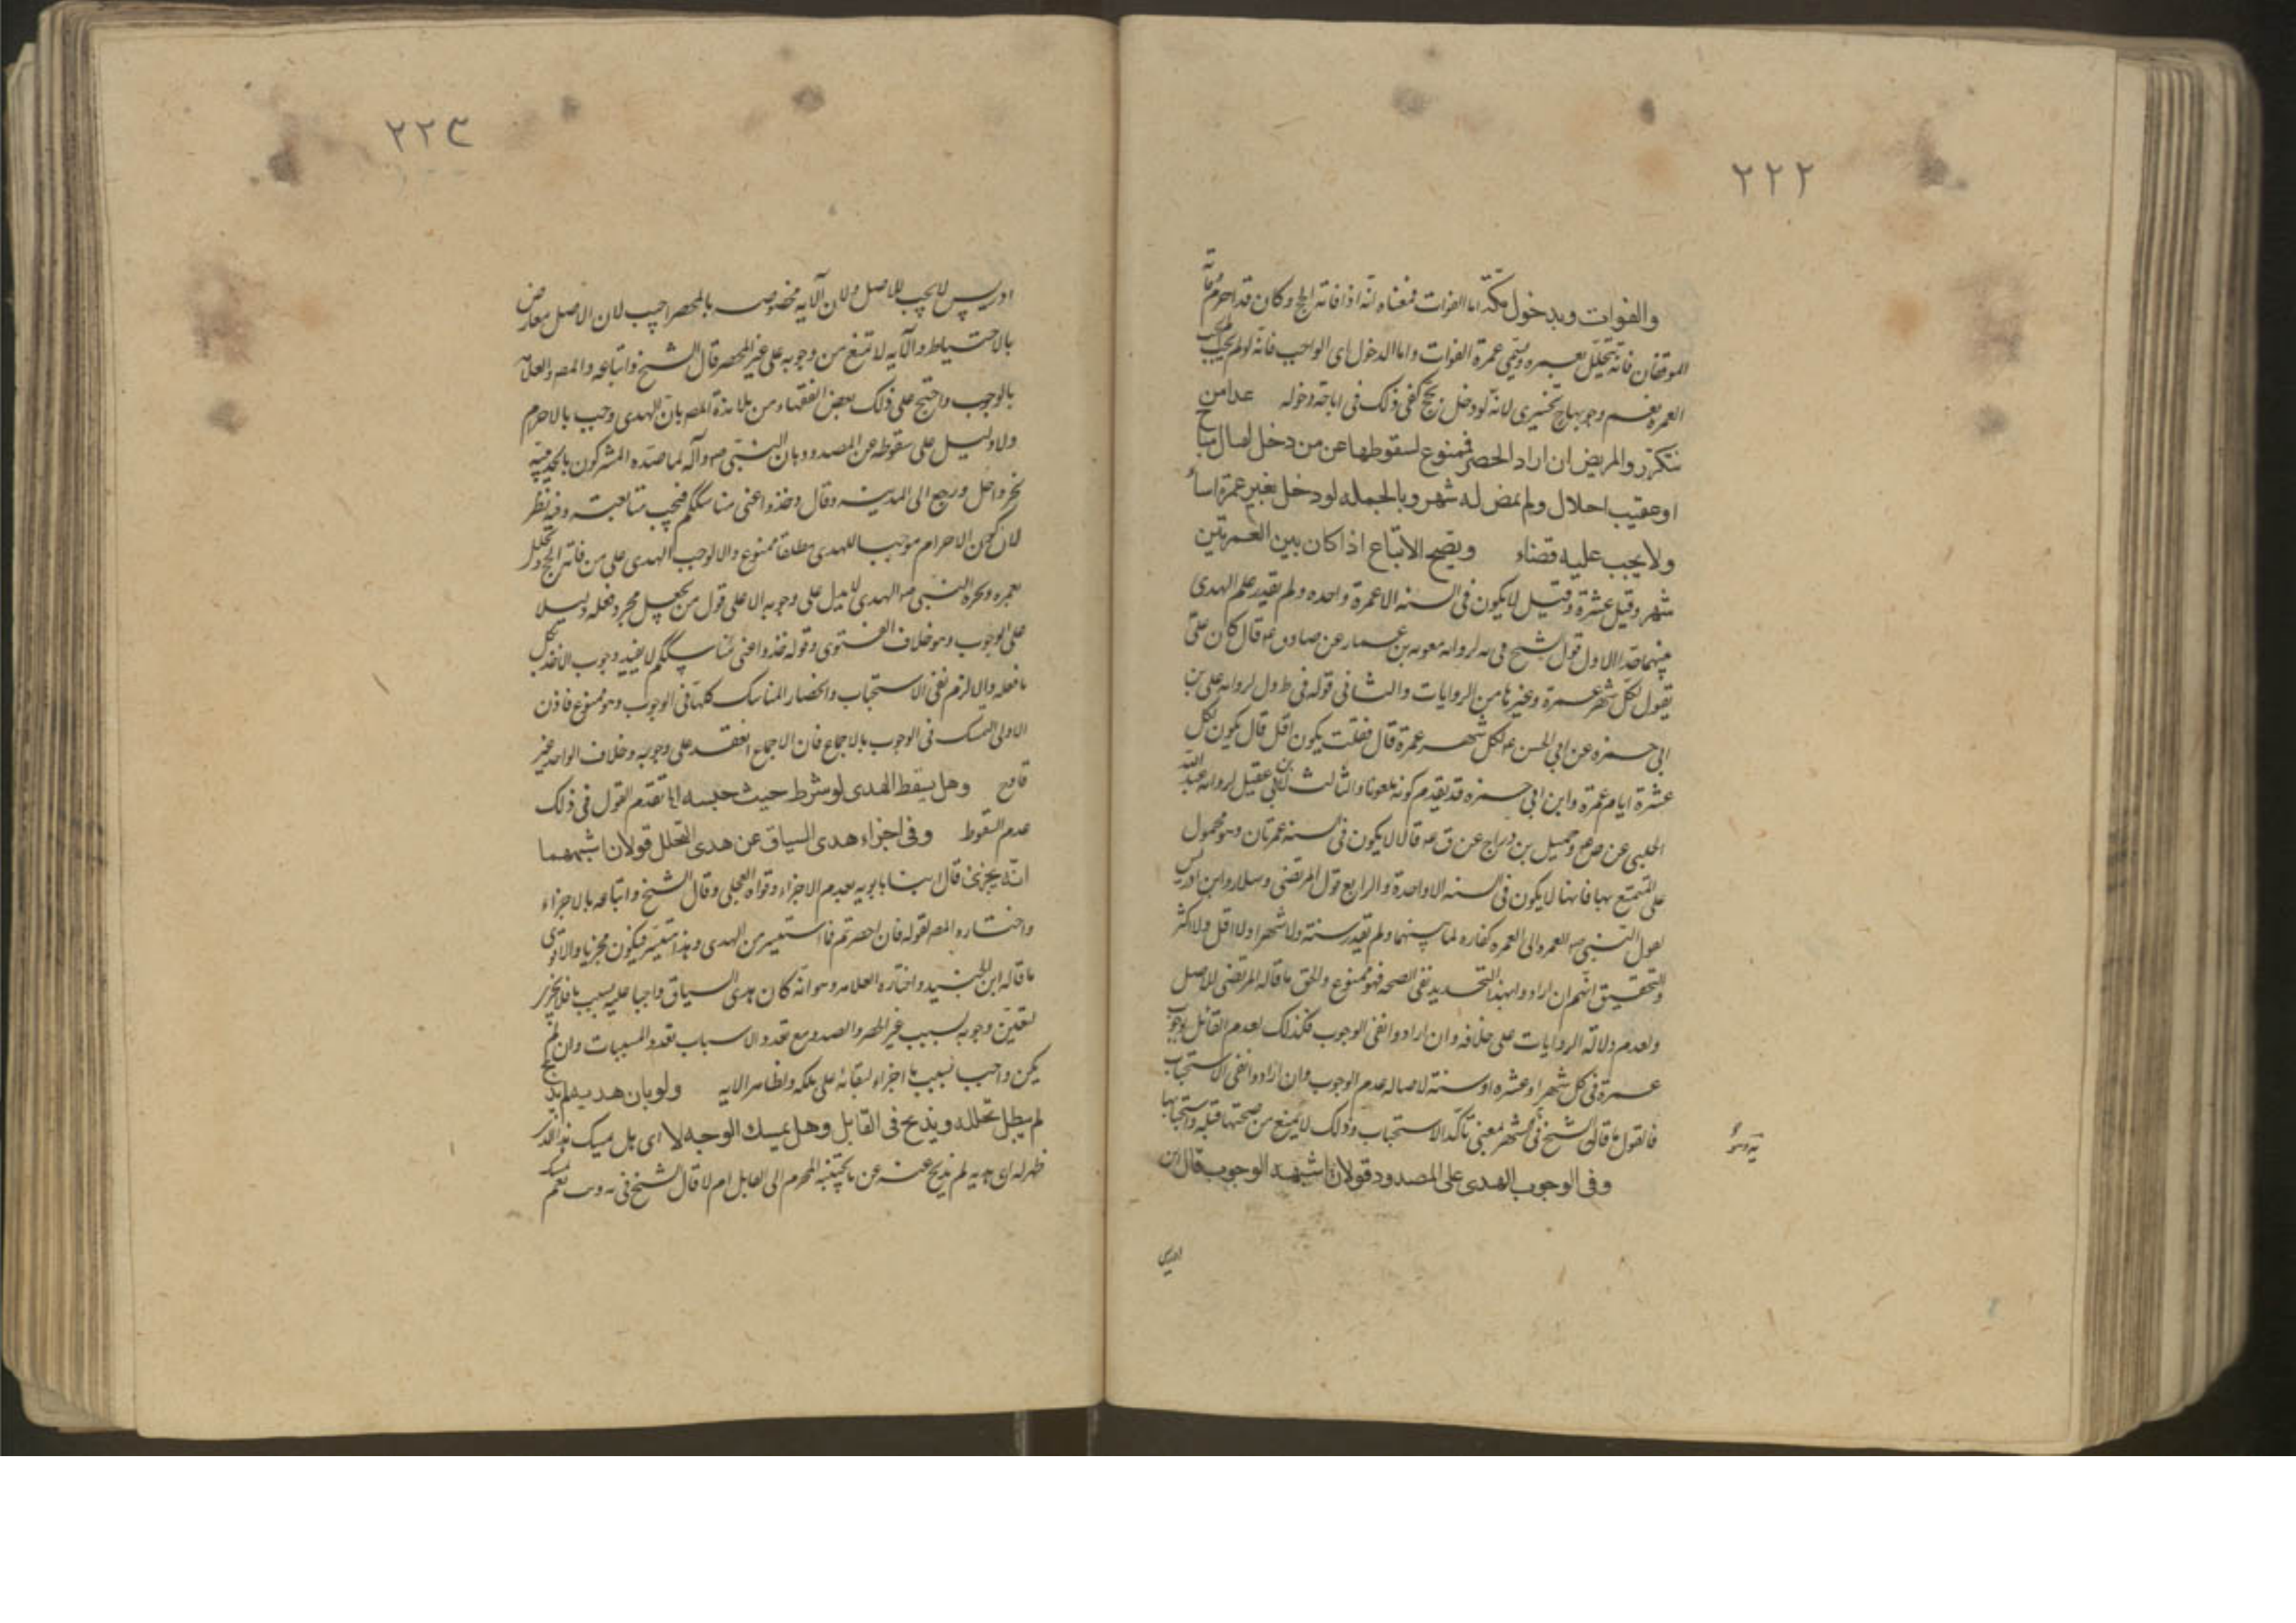 ٢٢٢
والفوات وبدخول مكة اما الفوات فمعناه انه اذا فاته الحج وكان قد احرم وفاته
الموقفان فانه يتحلل بعمره ويسمى عمرة الفوات واما الدخول اى الواجب فانه لو لم يجب
العمره نعم وجوبها تخييرى لانه لو دخل بحج كفى ذلك فى اباحة دخوله عدا من
يتكرر والمريض ان اراد الحصر فممنوع لسقوطها عن من دخل لقتال مباح
او عقيب احلال ولم يمض له شهر وبالجمله لو دخل بغير عمرة اساء
ولا يجب عليه قضاء ويصح الاتباع اذا كان بين العمرتين
شهر وقيل عشرة وقيل لا يكون فى السنه الا عمرة واحده ولم يقدر علم الهدى
بينهما حدا الاول قول الشيخ فى يه لروايه معويه بن عمار عن صادق ع قال كان على
يقول لكل شهر عمرة وغيرها من الروايات والثانى قوله فى ط ول لروايه على بن
ابى حمزه عن ابى الحسن ع لكل شهر عمرة قال فقلت يكون اقل قال يكون لكل
عشرة ايام عمرة وابن ابى حمزه قد تقدم كونه ملعونا والثالث لابن ابى عقيل لروايه عبيد الله
الحلبى عن ص ع وجميل بن دراج عن ق ع قالا لا يكون فى السنه عمرتان وهو محمول
على المتمتع بها فانها لا يكون فى السنه الا واحدة والرابع قول المرتضى وسلار وابن ادريس
لقول النبى ص العمره الى العمره كفاره لما بينهما ولم يقدر سنة ولا شهرا ولا اقل ولا اكثر
والتحقيق انهم ان ارادوا بهذا التحديد نفى الصحه فهو ممنوع والحق ما قاله المرتضى للاصل
ولعدم دلالة الروايات على خلافه وان ارادوا نفى الوجوب فكذلك لعدم القائل بوجوب
عمرة فى كل شهر او عشره او سنة لاصاله عدم الوجوب وان ارادوا نفى الاستحباب
فالقول ما قاله الشيخ فى الشهر بمعنى تأكد الاستحباب وذلك لا يمنع من صحتها قبله واستحبابها
وفى الوجوب الهدى على المصدود قولان اشبهه الوجوب قال ابن
ادريس
٢٢٣
ادريس لا يجب للاصل ولان الآيه مخصوصه بالمحصر اجيب لان الاصل معارض
بالاحتياط والآيه لا تمنع من وجوبه على غير المحصر قال الشيخ واتباعه والمص والعلامه
بالوجوب واحتج على ذلك بعض الفقهاء من تلامذة المص بان الهدى وجب بالاحرام
ولا دليل على سقوطه عن المصدود وبان النبى ص وآله لما صده المشركون بالحديبيه
نحر واحل ورجع الى المدينه وقال خذوا عنى مناسككم فيجب متابعته وفيه نظر
لان كون الاحرام موجبا للهدى مطلقا ممنوع والا لوجب الهدى على من فاته الحج وتحلل
بعمره ونحره النبى ص الهدى لا يدل على وجوبه الا على قول من يجعل مجرد فعله دليلا
على الوجوب وهو خلاف الفتوى وقوله خذوا عنى مناسككم لا يفيد وجوب الاخذ بكل
ما فعله والا لزم نفى الاستحباب وانحصار المناسك كلها فى الوجوب وهو ممنوع فاذن
الاولى التمسك فى الوجوب بالاجماع فان الاجماع انعقد على وجوبه وخلاف الواحد غير
قادح وهل يسقط الهدى لو شرط حيث حبسه انا تقدم القول فى ذلك
عدم السقوط وفى اجزاء هدى السياق عن هدى التحلل قولان اشبههما
انه يجزئ قال ابنا بابويه بعدم الاجزاء وقواه العجلى وقال الشيخ واتباعه بالاجزاء
واختاره المص لقوله فان احصرتم فما استيسر من الهدى وهذا متيسر فيكون مجزيا والاقوى
ما قاله ابن الجنيد واختاره العلامه وهو انه كان هدى السياق واجبا عليه بسبب ما فلا يجزى
لتعين وجوبه بسبب غير الحصر والصد ومع تعدد الاسباب تعدد المسببات وان لم
يكن واجبا بسبب ما اجزاء لبقائه على ملكه ولظاهر الايه ولو بان هديه لم يذبح
لم يبطل تحلله ويذبح فى القابل وهل يمسك الوجه لا اى هل يمسك
ظهر له ان هديه لم يذبح عنه عن ما يجتنبه المحرم الى القابل ام لا قال الشيخ فى يه وب نعم